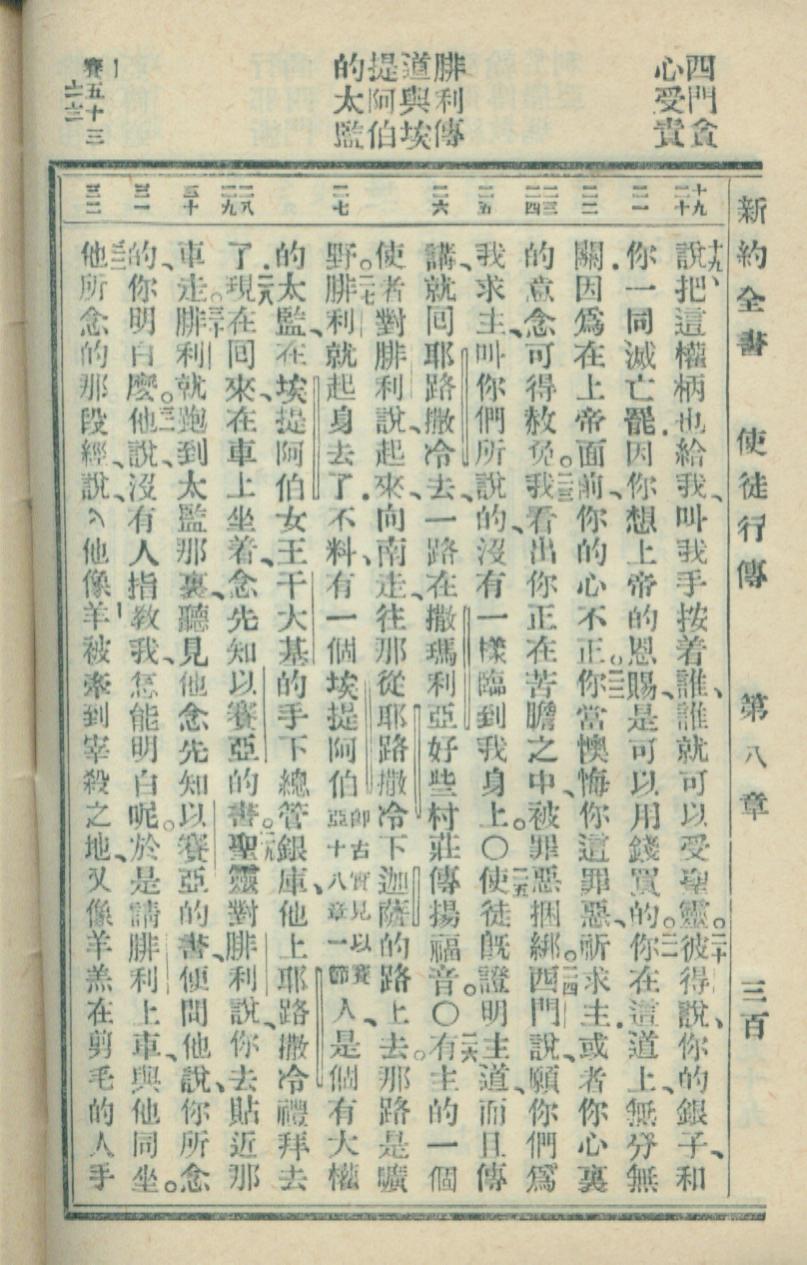 四門貪
心受責
腓利傳
道與埃
提阿伯
的太監
賽五十三
新約全書 使徒行傳 第八章 三百
十九 二十
二一
二二
二三 二四
二五
二六
二七
二八 二九
三十
三一
三二
十九說、把這權柄也給我、叫我手按着誰、誰就可以受聖靈。二十彼得說、你的銀子、和
你一同滅亡罷．因你想上帝的恩賜、是可以用錢買的。二一你在這道上、無分無
關．因爲在上帝面前、你的心不正。二二你當懊悔你這罪惡、祈求主．或者你心裏
的意念可得赦免。二三我看出你正在苦膽之中、被罪惡捆綁。二四西門說、願你們爲
我求主、叫你們所說的、沒有一樣臨到我身上。〇二五使徒旣證明主道、而且傳
講、就回耶路撒冷去、一路在撒瑪利亞好些村莊傳揚福音。〇二六有主的一個
使者對腓利說、起來、向南走、往那從耶路撒冷下迦薩的路上去。那路是曠
野。二七腓利就起身去了．不料、有一個埃提阿伯卽古實見以賽亞十八章一節人、是個有大權
的太監、在埃提阿伯女王干大基的手下總管銀庫、他上耶路撒冷禮拜去
了．二八現在回來、在車上坐着、念先知以賽亞的書。二九聖靈對腓利說、你去貼近那
車走。三十腓利就跑到太監那裏、聽見他念先知以賽亞的書、便問他說、你所念
的、你明白麽。三一他說、沒有人指敎我、怎能明白呢。於是請腓利上車、與他同坐。
三二他所念的那段經、說、他像羊被牽到宰殺之地、又像羊羔在剪毛的人手